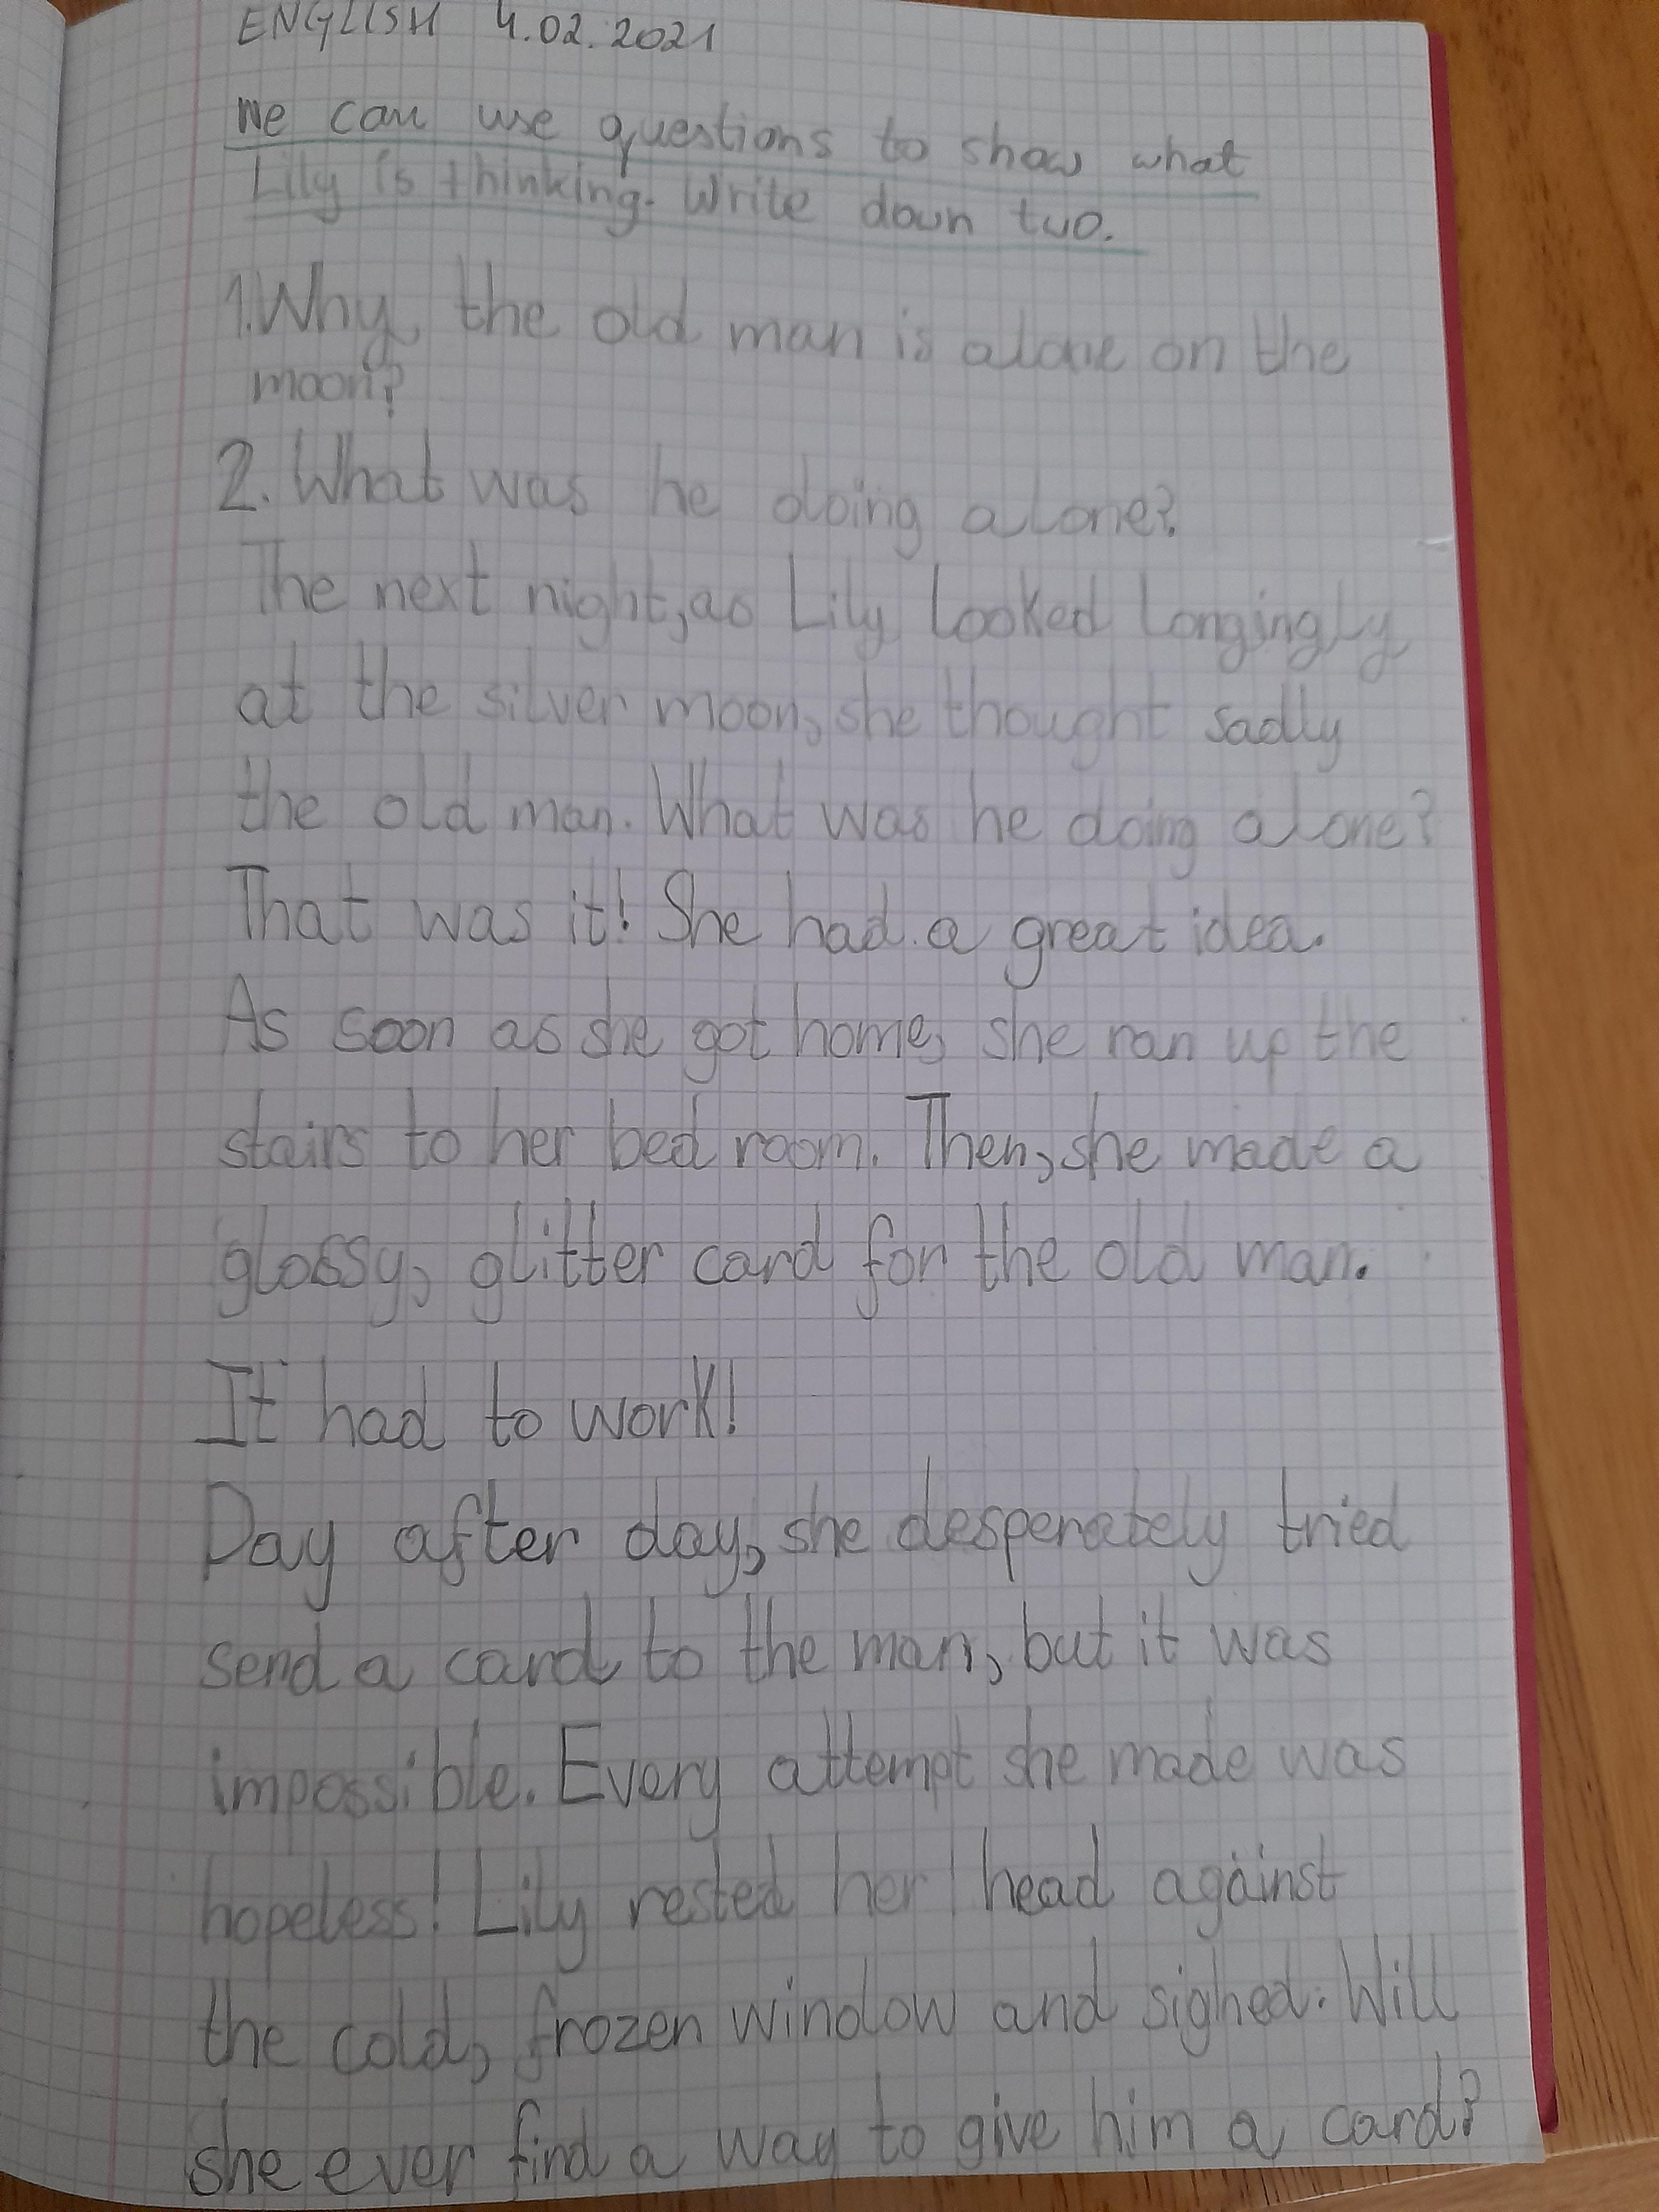 ENGLISH 4.02.2021
We can use questions to show what
Lily is thinking. Write down two.
1. Why, the old man is alone on the
moon?
2. What was he doing alone?
The next night, as Lily looked longingly
at the silver moon, she thought sadly
the old man. What was he doing alone?
That was it! She had a great idea.
As soon as she got home, she ran up the
stairs to her bed room. Then, she made a
glossy, glitter card for the old man.
It had to work!
Day after day, she desperately tried
send a card to the man, but it was
impossible. Every attempt she made was
hopeless! Lily rested her head against
the cold, frozen window and sighed. Will
she ever find a way to give him a card?